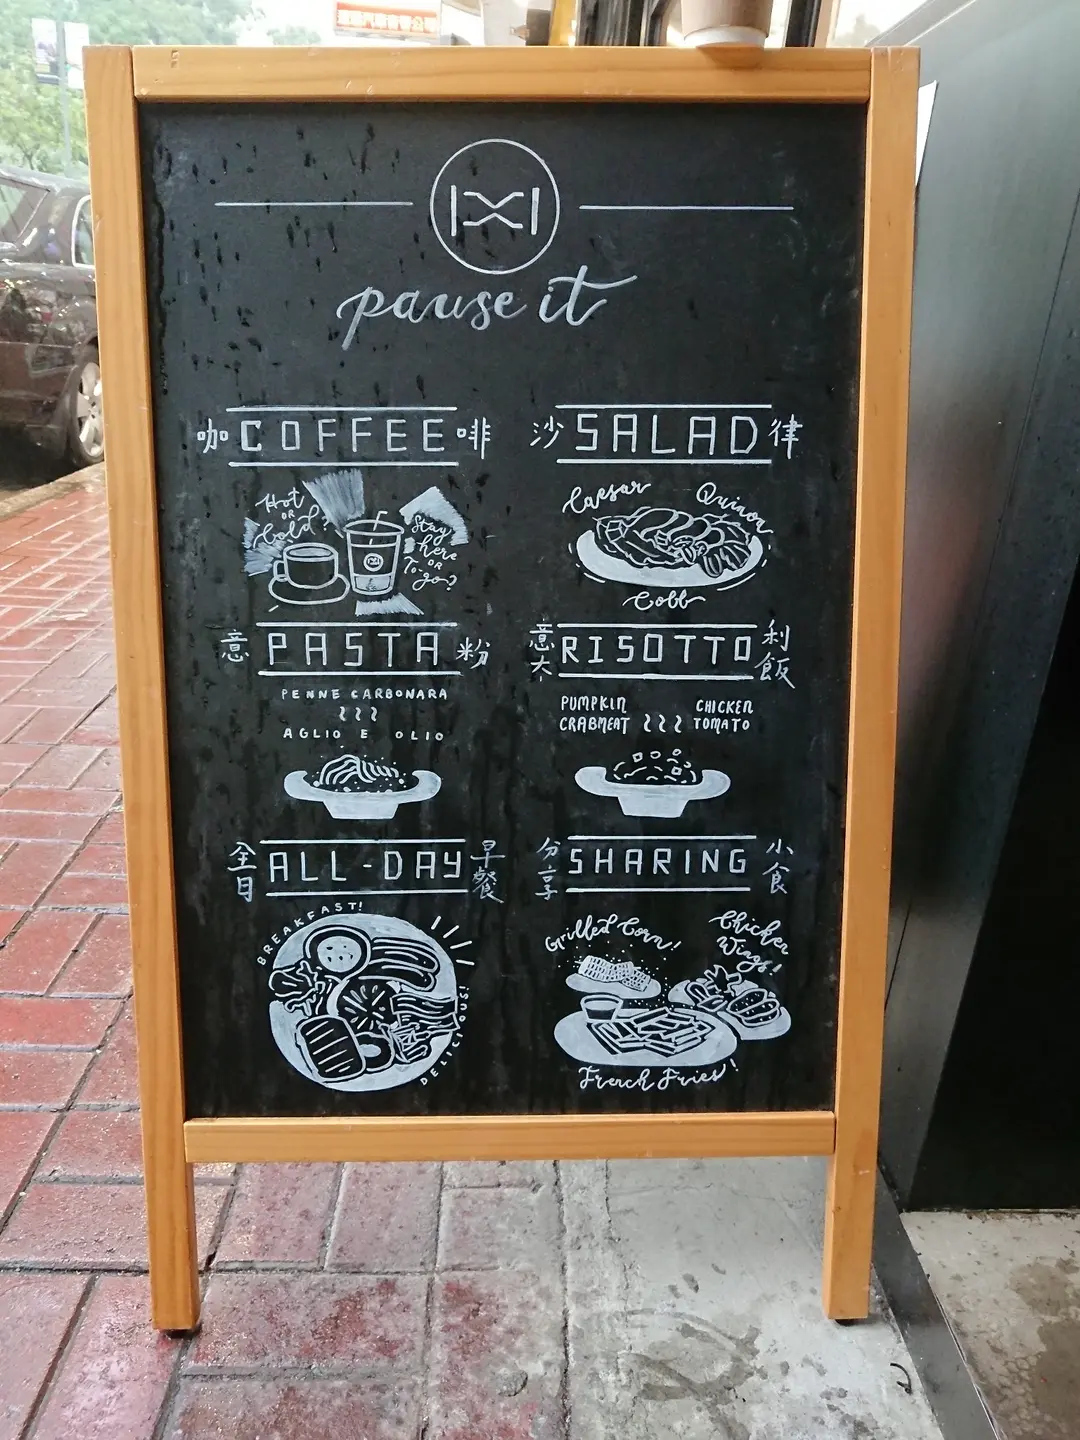 pause it
咖 COFFEE 啡
Hot
OR
Cold?
Stay
here
OR
To-go?
沙 SALAD 律
Caesar
Quinoa
Cobb
意 PASTA 粉
PENNE CARBONARA
AGLIO E OLIO
意大 RISOTTO 利飯
PUMPKIN
CRABMEAT
CHICKEN
TOMATO
全日 ALL-DAY 早餐
BREAKFAST!
DELICIOUS!
分享 SHARING 小食
Grilled Corn!
Chicken
Wings!
French Fries!